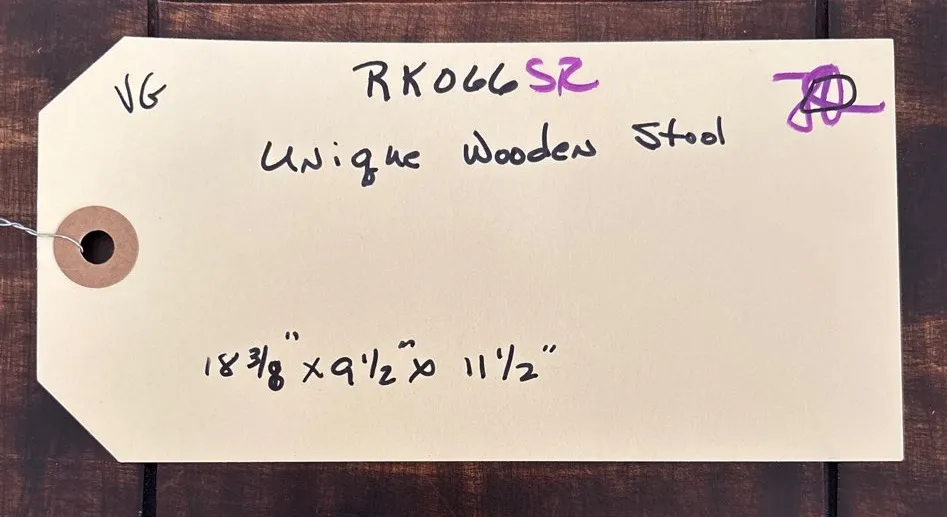 VG RK066SR
Unique Wooden Stool
18 3/8" x 9 1/2" x 11 1/2"